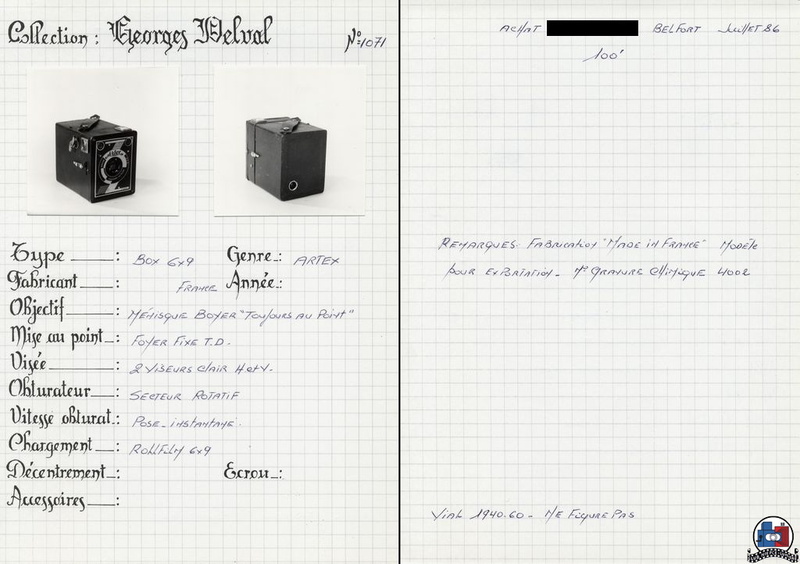 Collection : Georges Delval
N° 1071
Type : Box 6x9 Genre : ARTEX
Fabricant : FRANCE Année :
Objectif : MÉNISQUE BOYER "TOUJOURS AU POINT"
Mise au point : FOYER FIXE T.D.
Visée : 2 VISEURS CLAIR H et V.
Obturateur : SECTEUR ROTATIF
Vitesse obturat. : POSE - INSTANTANÉ.
Chargement : ROLLFILM 6x9
Décentrement : Ecrou :
Accessoires :
ACHAT BELFORT JUILLET 86
100F
REMARQUES: FABRICATION "MADE IN FRANCE" MODÈLE
POUR EXPORTATION - N° GRAVURE CHIMIQUE 4002
VIAL 1940.60 - NE FIGURE PAS